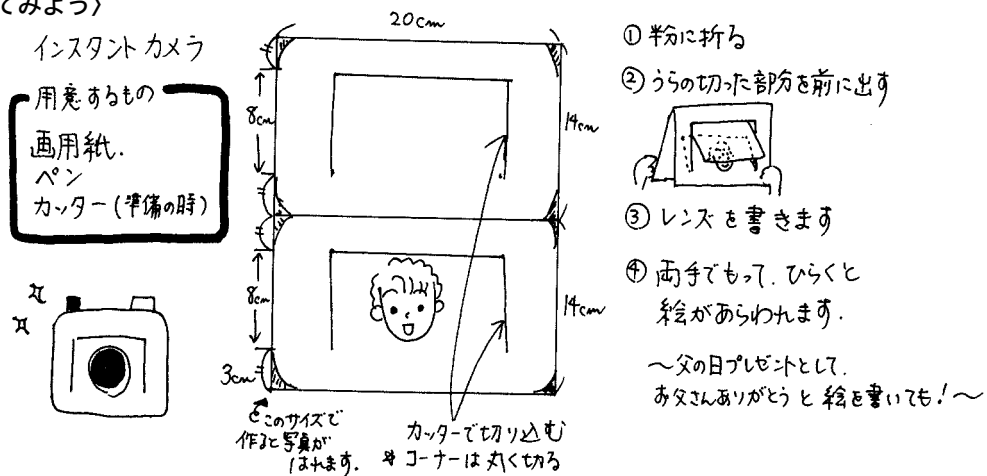 てみよう〉
インスタントカメラ
用意するもの
画用紙.
ペン
カッター(準備の時)
20cm
8cm
14cm
8cm
14cm
3cm
このサイズで
作ると写真が
はれます.
カッターで切り込む
* コーナーは丸く切る
① 半分に折る
② うらの切った部分を前に出す
③ レンズを書きます
④ 両手でもって、ひらくと
絵があらわれます.
〜父の日プレゼントとして、
お父さんありがとうと絵を書いても!〜